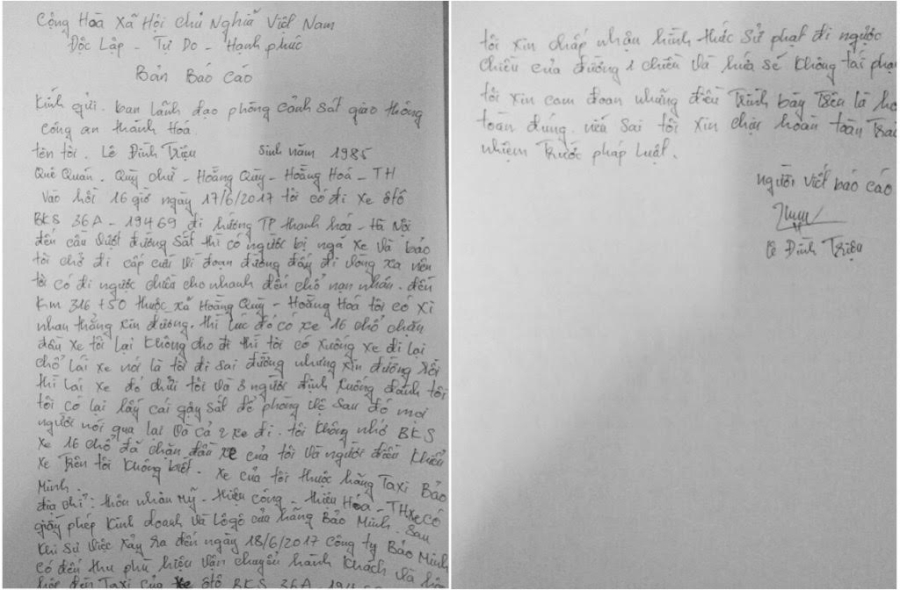 Cộng Hoà Xã Hội Chủ Nghĩa Việt Nam
Độc Lập - Tự Do - Hạnh phúc
Bản Báo Cáo
Kính gửi. ban lãnh đạo phòng cảnh sát giao thông
công an thanh Hoá
tên tôi. Lê Đình Triệu sinh năm 1985
Quê Quán. Quỳ chử - Hoằng Quỳ - Hoằng Hoá - TH
Vào hồi 16 giờ ngày 17/6/2017 tôi có đi xe ôtô
BKS 36A - 19469 đi hướng TP thanh hóa - Hà Nội
đến cầu vượt đường sắt thì có người bị ngã xe và bảo
tôi chở đi cấp cứu vì đoạn đường đấy đi vòng xa nên
tôi có đi ngược chiều cho nhanh để chở nạn nhân. đến
Km 316 +50 thuộc xã Hoằng Quỳ - Hoằng Hoá tôi có xi
nhan thẳng xin đường. thì lúc đó có xe 16 chỗ chặn
đầu xe tôi lại không cho đi thì tôi có xuống xe đi lại
chỗ lái xe nói là tôi đi sai đường nhưng xin đường rồi
thì lái xe đó chửi tôi và 3 người định xuống đánh tôi
tôi có lại lấy cái gậy sắt để phòng vệ sau đó mọi
người nói qua lại và cả 2 xe đi. tôi không nhớ BKS
xe 16 chỗ đã chặn đầu xe của tôi và người điều khiển
xe Trên tôi không biết. xe của tôi thuộc hãng Taxi Bảo
Minh.
địa chỉ: thôn nhân Mỹ - thiệu công - thiệu Hóa - TH xe có
giấy phép kinh doanh và Lôgô của hãng Bảo Minh. sau
khi sự việc xảy ra đến ngày 18/6/2017 công ty Bảo Minh
có đến thu phù hiệu vận chuyển hành khách và
đèn Taxi của xe ôtô BKS 36A
tôi xin chấp nhận hình thức sử phạt đi ngược
chiều của đường 1 chiều và hứa sẽ không tái phạm
tôi xin cam đoan những điều Trình bày Trên là
toàn đúng. nếu sai tôi xin chịu hoàn toàn
nhiệm Trước pháp luật.
người viết báo cáo
Lê Đình Triệu